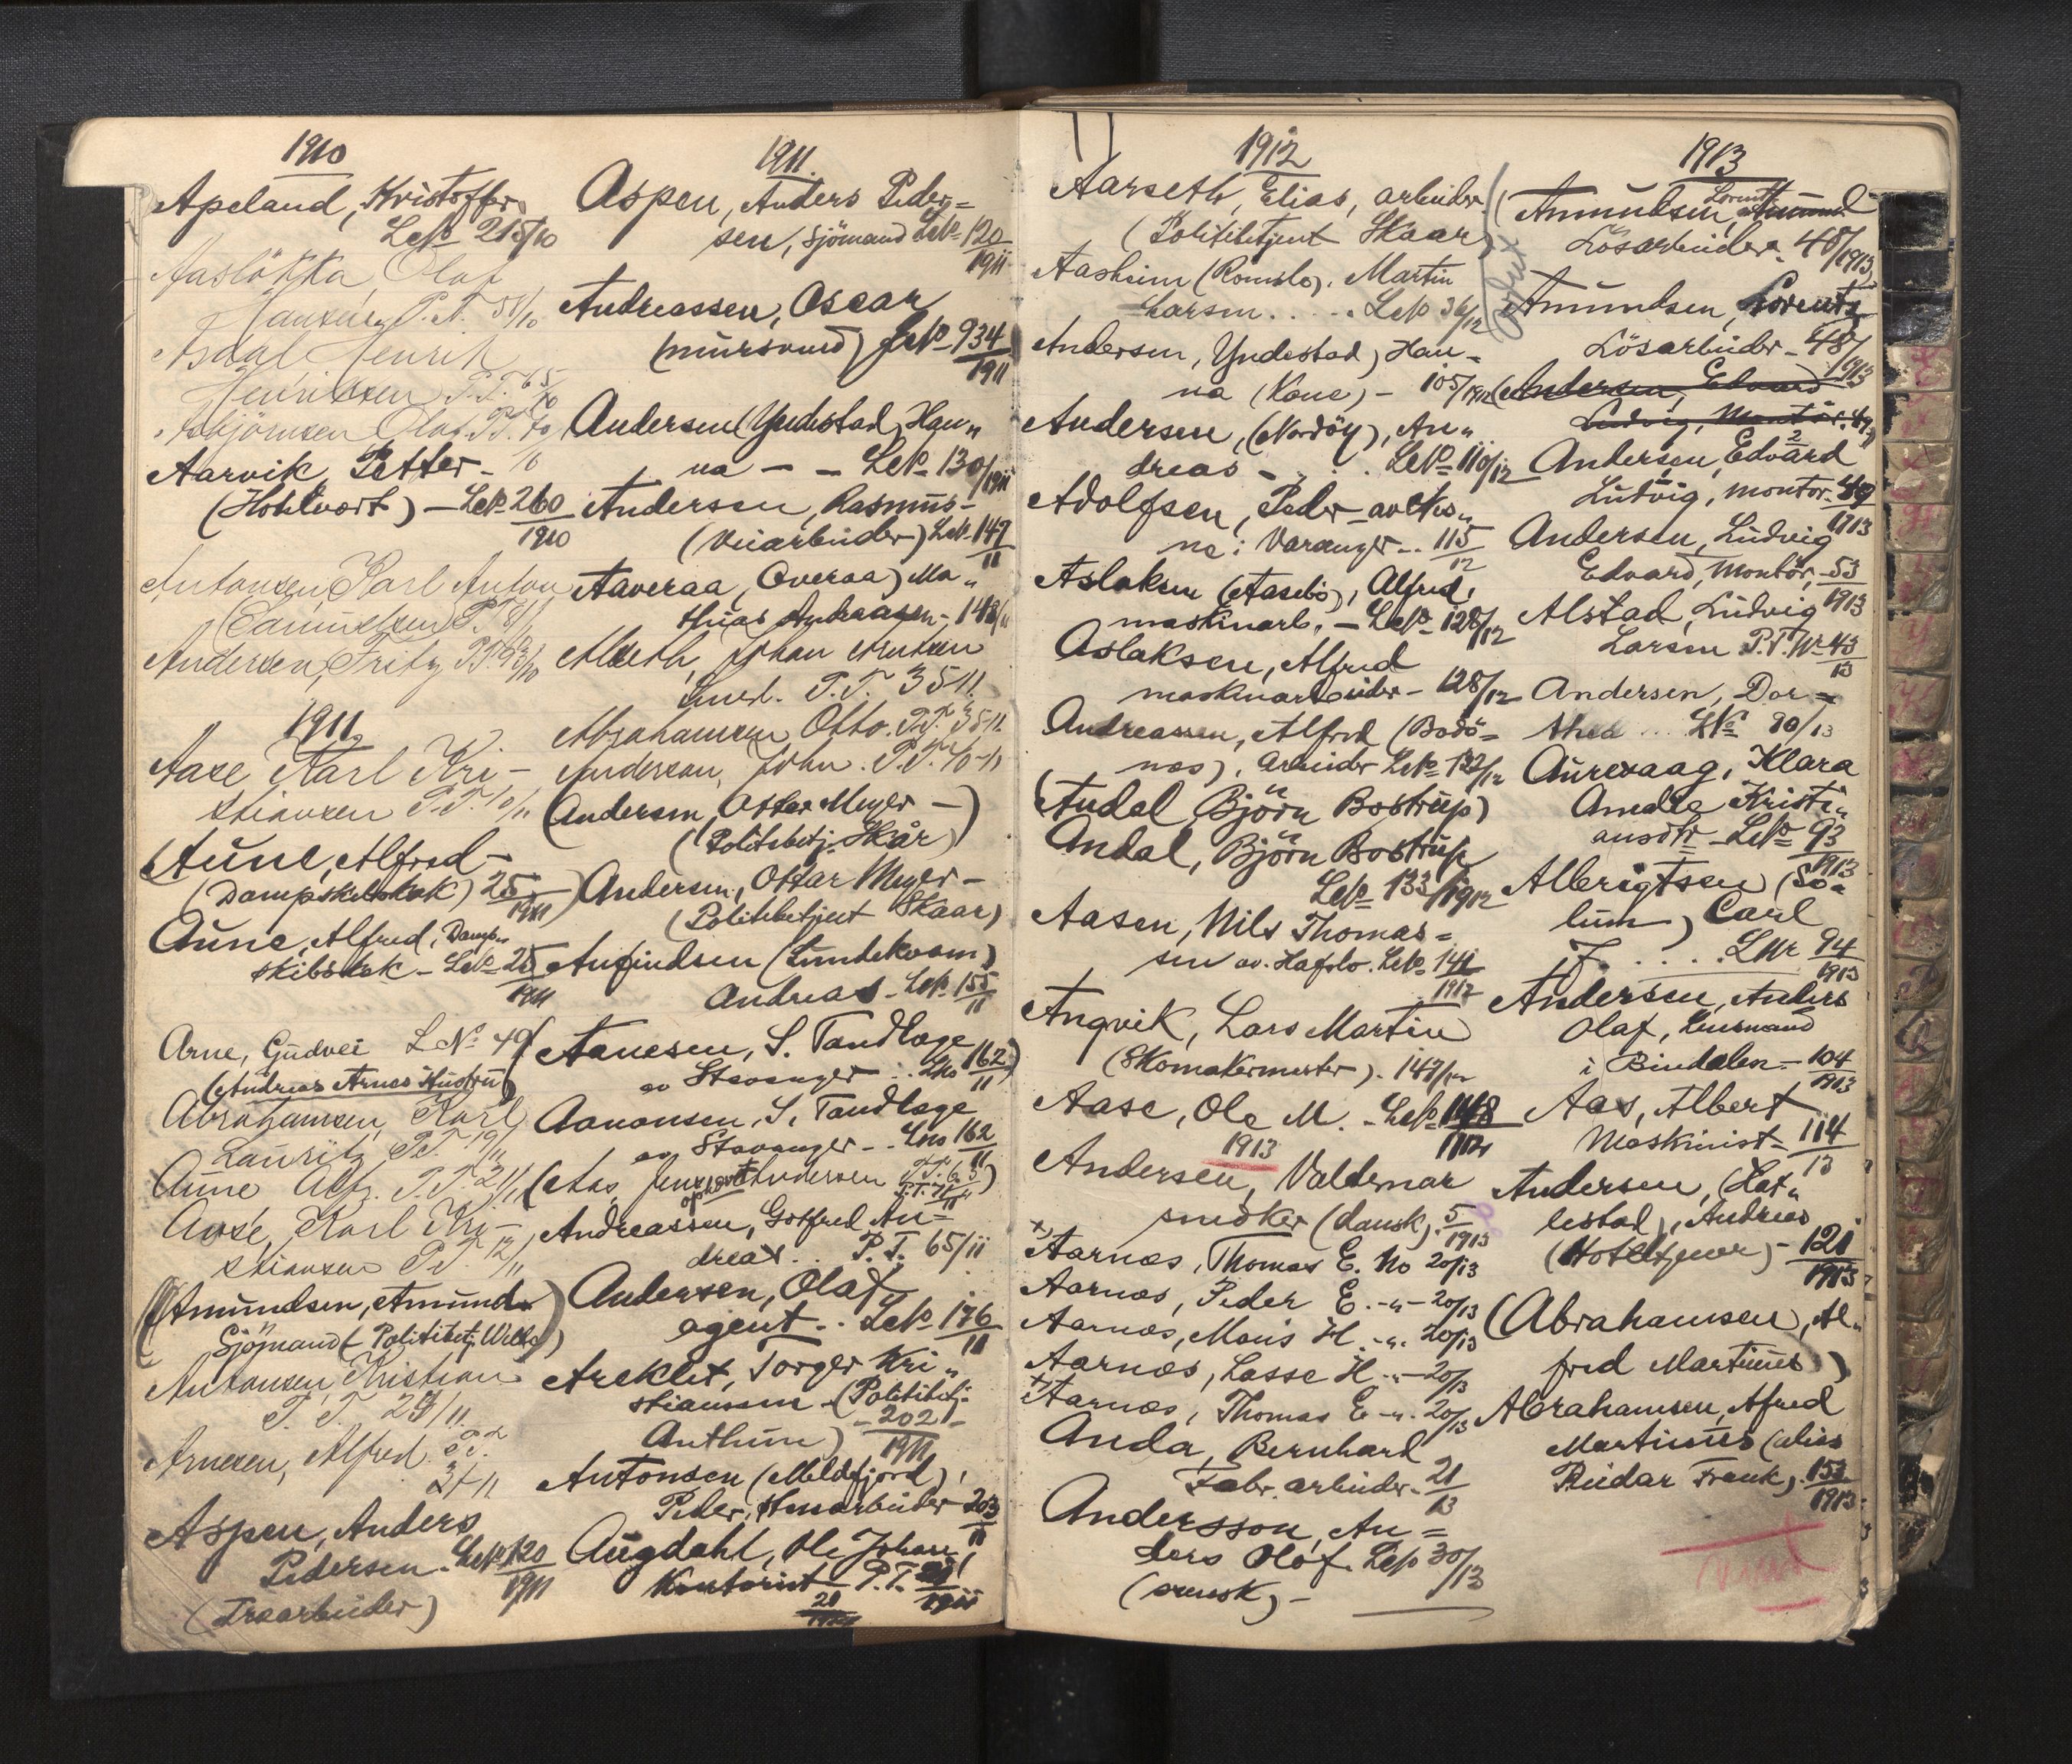 1910
Apeland, Kristoffer
LNo 215/10
Aaslökka, Olaf
Hansen P.T. 51/10
Asdal Henrik
Henriksen P.T. 65/10
Asbjörnsen Olaf P.T. 70
10
Aarvik, Petter -
(Hohlvort) - LNo 260
1910
Antonsen, Karl Anton
P.T. 81/
Andersen, Fritz P.T. 93/10
1911
Aase Karl Kri-
stiansen P.T. 10/11
(Aune, Alfred -
(Dampskibskok) 25
1911)
Aune, Alfred, Damp-
skibskok - LNo 25
1911
Arne, Gudvei LNo 49
(Andreas Arnes Hustru)
Abrahamsen, Karl
Lauritz P.T. 19/11
Aune Alfr. P.T. 21/11
Aase, Karl Kri-
stiansen P.T. 12/11
(Amundsen, Amund
Sjömand (Politibetj. Wells)
Antonsen, Kristian
P.T. 29/11.
Arnesen, Alfred P.T.
31/11
Aspen, Anders
Pedersen. LNo 120
1911
(Træarbeider)
1911.
Aspen, Anders Peder=
sen, Sjömand LNo 120
1911
Andreassen, Oscar
(mursvend) LNo 934
1911
Andersen (Yndestad, Han„
na - - LNo 130/1911
Andersen, Rasmus -
(Veiarbeider) LNo 147
11
Aaveraa, Overaa) Ma„
thias Andreasen - 148/11
Alseth, Johan Knutsen
P.T. 35 11.
Abrahamsen Otto. P.T. 35-11.
Anderson, John. P.T. 40-11
(Andersen, Ottar Meyer -)
(Politibetj. Skår)
Andersen, Ottar Meyer -
(Politibetjent Skaar)
Anfindsen (Lundekvam)
Andreas - LNo 155
11
(Aanesen, S. Tandlæge
av Stavanger .. LNo 162)
11
Aanonsen, S, Tandlæge
av Stavanger - - LNo 162
11
(Aas, Jens Andersen P.T. 63)
ophævt
Andreassen, Gotfred An=
dreas... P.T. 65/11
Andersen, Olaf,
agent.. LNo 176
11
Areklet, Torger Kri„
stianssen - (Politibetj.
- 202 -
Anthun) 1911
Antonsen (Meldefjord),
Peder, Stenarbeider 203
11
Augdahl, Ole Johan
Kontorist P.T.
1912
Aarseth, Elias, arbeider.
(Politibetjent Skaar)
Aasheim (Romslo), Martin
Larsen. . - . LNo 36/12
Andersen, Yndestad) Han-
na (Kone) - 105/1912
Andersen, (Nordöy), An„
dreas - . . . LNo 110/12
Adolfsen, Peder - av Nes„
ne i Varanger .. 115
12
Aslaksen (Aasebö), Alfred,
maskinarb. - LNo 128/12
Aslaksen, Alfred
maskinarbeider - 128/12
Andreassen, Alfred (Bodö=
næs), arbeider LNo 132/12
(Audal Björn Bostrup)
Andal, Björn Bostrup
LNo 133/1912
Aasen, Nils Thomas=
sen av Hafslo. LNo 141
1912
Angvik, Lars Martin
(Skomakermester). 147/12
Aase, Ole M. - LNo 148
1912
1913
Andersen, Valdemar
snedker (dansk). 5
1913
x) Aarnæs, Thomas E. No 20/13
Aarnæs, Peder E. -„- 20/13
Aarnæs, Mons H. -„- 20/13
Aarnæs, Lasse H -„- 20/13
x) Aarnæs, Thomas E -„- 20/13
Anda, Bernhard
Fabr. arbeider. 21
13
Andersson, An=
ders Olof. LNo 30/13
(svensk) -
1913
(Amundsen, Lorentz Amund
Lösarbeider. 48/1913
Amundsen, Lorentz
Lösarbeider - 48/1913
(Andersen, Edvard
Ludvig, Montör. 49
Andersen, Edvard
Ludvig, Montör. 49
1913
Andersen, Ludvig
Edvard, Montör, 53
1913
Alstad, Ludvig
Larsen P.T. Nr 43
13
Andersen, Dor=
thea ... LNo 80/13
Aurexaag, Klara
Amalie Kristi„
ansdtr - LNo 93
1913
Albrigtsen (So=
lum) Carl
J. . . . . LNr 94
1913
Andersen, Anders
Olaf, Lensmand
i Bindalen - 104
1913
Aas, Albert
Maskinist - 114
13
Andersen, (Hat„
lestad), Andreas
(Hoteltjener) - 121
1913
(Abrahamsen, Al„
fred Martinus)
Abrahamsen, Alfred
Martinus (alias
Reidar Frank). 153
1913